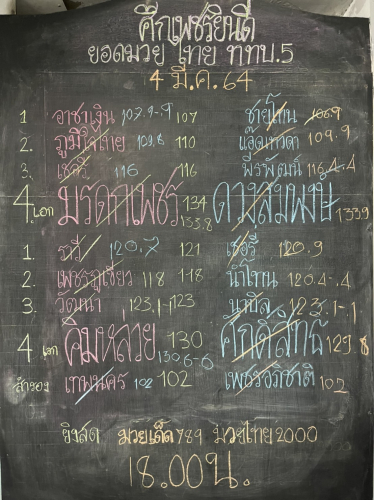 ศึกเพชรยินดี
ยอดมวยไทย ททบ.5
4 มี.ค.64
1. อาชาเงิน 107.9-.9 107 ชายโทน 106.9
2. ภูมิใจไทย 109.8 110 แอ๊ดเทวดา 109.9
3. เชอรี่ 116 116 พีรพัฒน์ 116.4-.4
4.เอก มรดกเพชร 134 133.8 ดาวสมพงษ์ 133.9
1. ราวี 120.7 121 เชอรี่ 120.9
2. เพชรภูเขียว 118 118 น้ำโทน 120.4-.4
3. วัฒนา 123.1-.1 123 123.1-.1
4 เอก คิมหลวย 130 130.6-6 ศักดิ์สิทธิ์ 129.8
สำรอง เทพนคร 102 102 เพชรอภิชาติ 102
ยิงสด มวยเด็ด 789 มวยไทย 2000
18.00น.